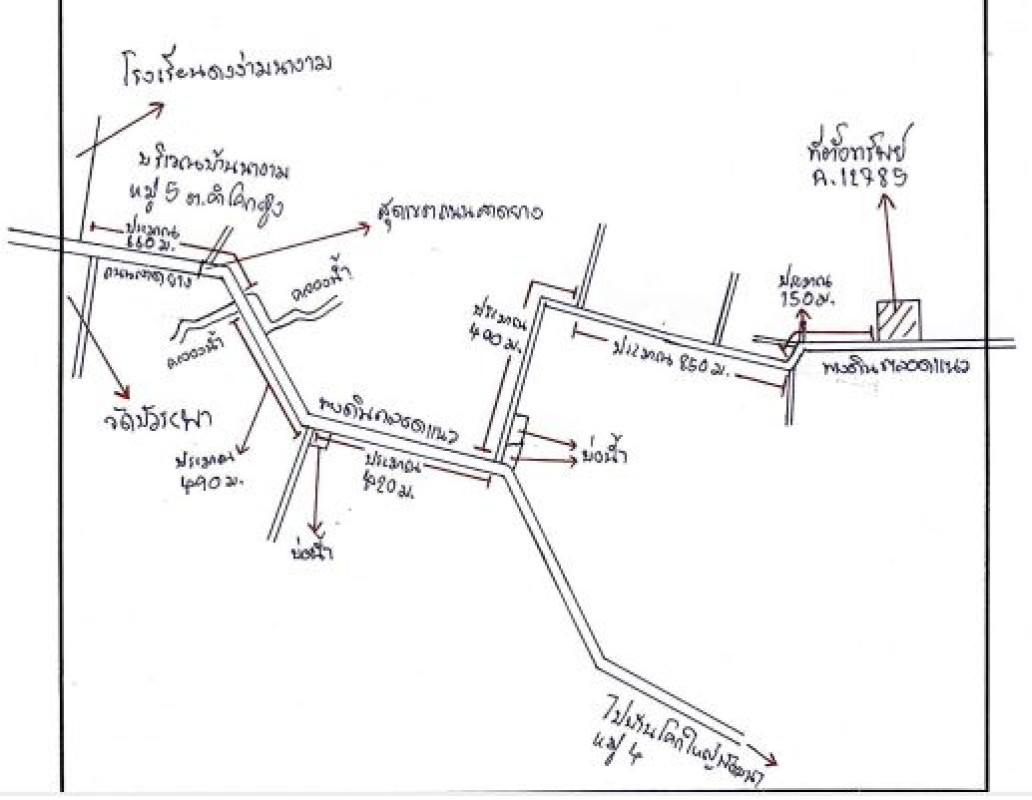 โรงเรียนดงง่ามนางาม
บริเวณบ้านนางาม
หมู่ 5 ต.คำโคกสูง
ที่ตั้งทรัพย์
A.12785
สุดเขตถนนลาดยาง
ประมาณ
660 ม.
ถนนลาดยาง
คลองน้ำ
คลองน้ำ
ประมาณ
490 ม.
ประมาณ 850 ม.
ประมาณ
150 ม.
ทางดินตลอดแนว
ทางดินตลอดแนว
ประมาณ
490 ม.
ประมาณ
420 ม.
บ่อน้ำ
บ่อน้ำ
ไปบ้านโคกใหญ่พัฒนา
หมู่ 4